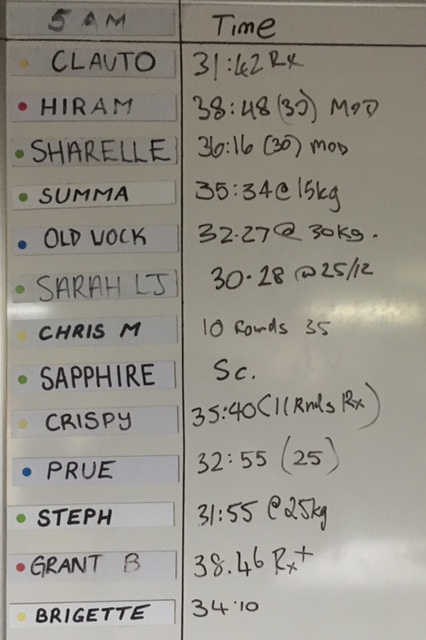 5 AM Time
CLAUTO 31:42 Rx
HIRAM 38:48 (30) MOD
SHARELLE 36:16 (30) MOD
SUMMA 35:34 @ 15kg
OLD VOCK 32.27 @ 30kg.
SARAH LJ 30.28 @ 25/12
CHRIS M 10 Rounds 35
SAPPHIRE Sc.
CRISPY 35:40 (11 Rnds Rx)
PRUE 32:55 (25)
STEPH 31:55 @ 25kg
GRANT B 38.46 Rx+
BRIGETTE 34:10